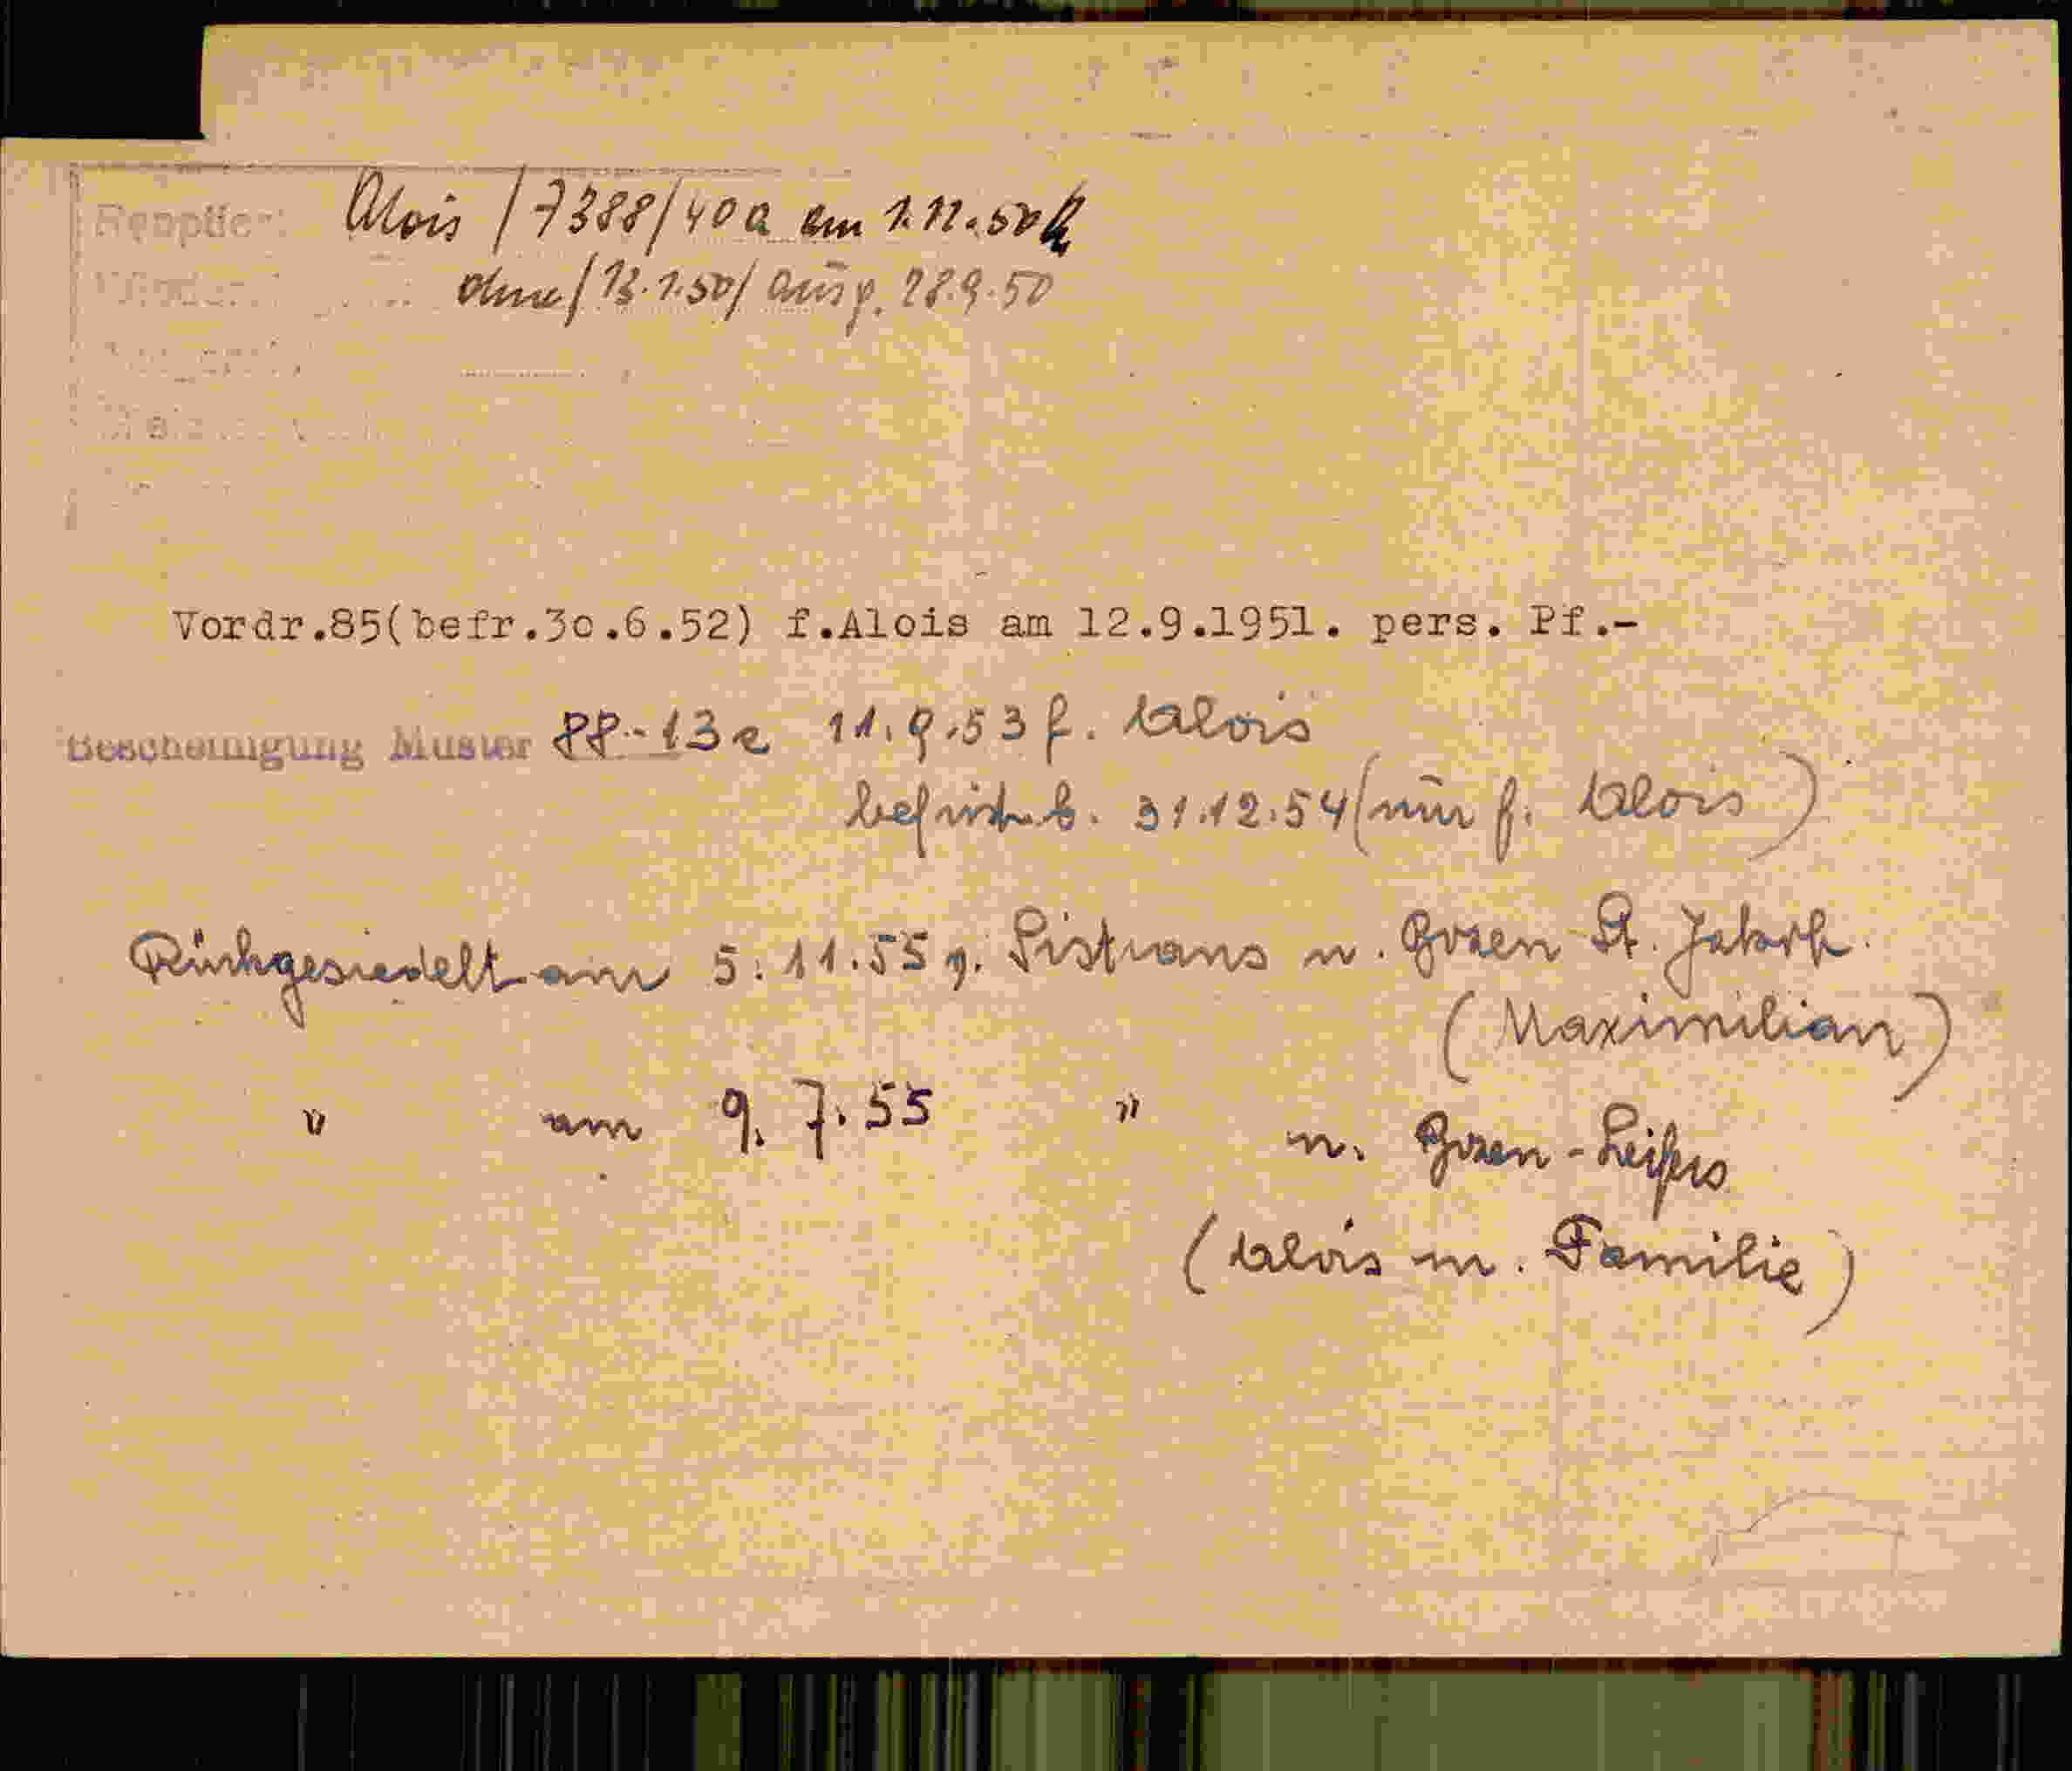 Reoptiert Alois / 7388/40a am 1.11.50
ohne / 13.1.50 / ausg. 28.9.50
Vordr.85(befr.30.6.52) f.Alois am 12.9.1951. pers. Pf.-
Bescheinigung Muster 88-13e 11.9.53 f. Alois
befrist. b. 31.12.54 (nur f. Alois)
Rückgesiedelt am 5.11.55 v. Sistrans n. Bozen St. Jakob
(Maximilian)
" am 9.7.55 " n. Bozen-Leifers
(Alois m. Familie)